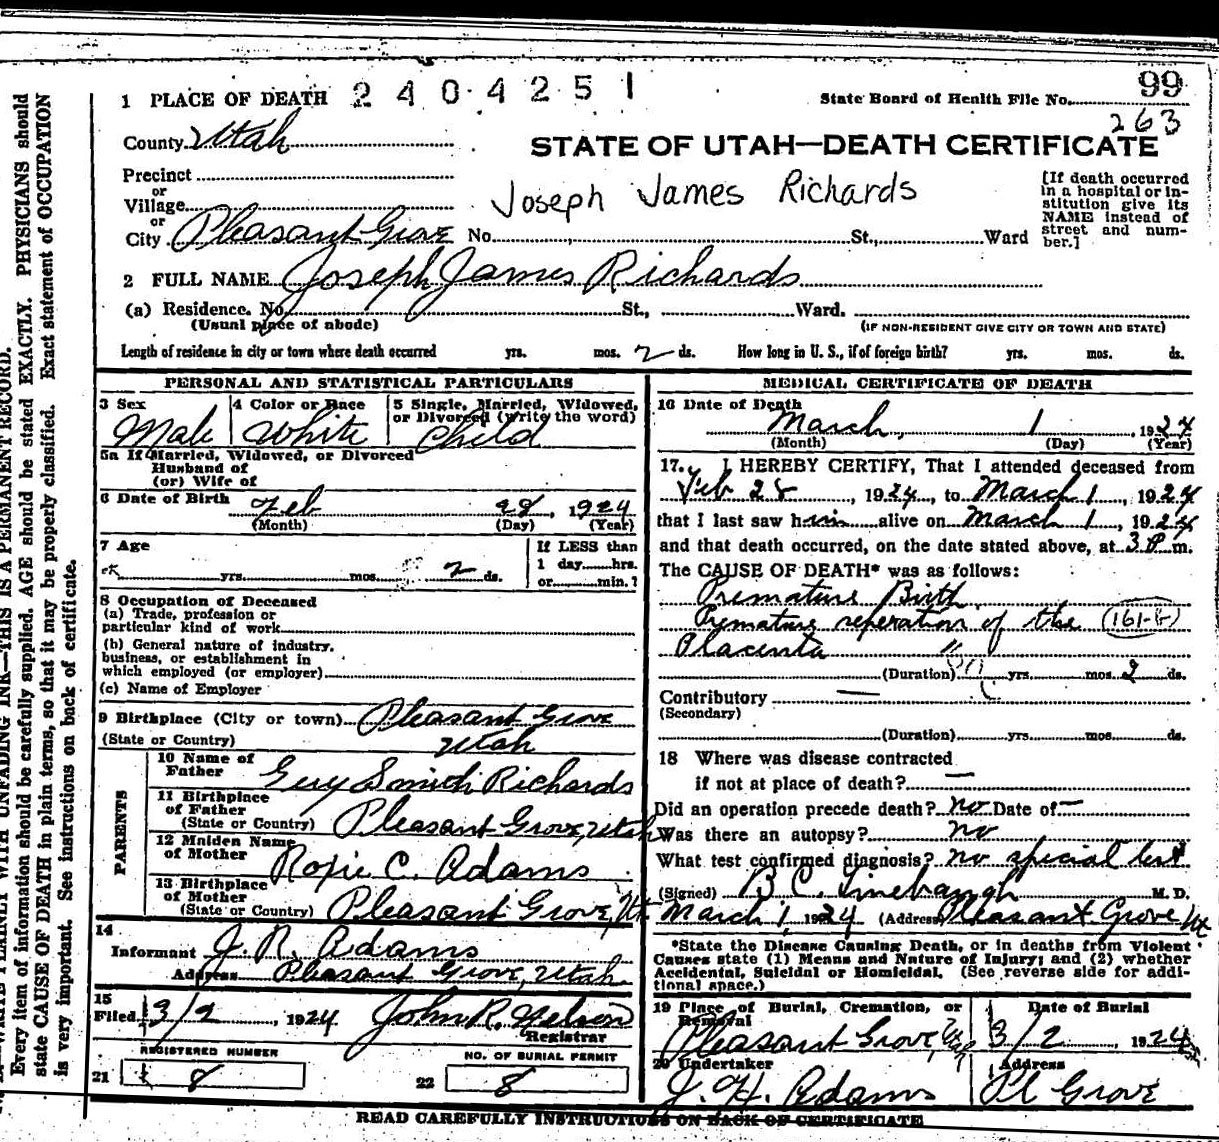 99
1 PLACE OF DEATH 2404251 State Board of Health File No.
263
County Utah
STATE OF UTAH—DEATH CERTIFICATE
Precinct
or
Village
or
City Pleasant Grove No. St., Ward
Joseph James Richards
[If death occurred
in a hospital or in-
stitution give its
NAME instead of
street and num-
ber.]
2 FULL NAME Joseph James Richards
(a) Residence. No. St., Ward.
(Usual place of abode) (IF NON-RESIDENT GIVE CITY OR TOWN AND STATE)
Length of residence in city or town where death occurred yrs. mos. 2 ds. How long in U. S., if of foreign birth? yrs. mos. ds.
PERSONAL AND STATISTICAL PARTICULARS
3 Sex
Male
4 Color or Race
White
5 Single, Married, Widowed,
or Divorced (write the word)
Child
5a If Married, Widowed, or Divorced
Husband of
(or) Wife of
6 Date of Birth Feb 28, 1924
(Month) (Day) (Year)
7 Age
yrs. mos. 2 ds.
If LESS than
1 day hrs.
or min.?
8 Occupation of Deceased
(a) Trade, profession or
particular kind of work
(b) General nature of industry,
business, or establishment in
which employed (or employer)
(c) Name of Employer
9 Birthplace (City or town) Pleasant Grove
(State or Country) Utah
PARENTS
10 Name of
Father Smith Richards
11 Birthplace
of Father
(State or Country) Pleasant Grove, Utah
12 Maiden Name
of Mother Roxie C. Adams
13 Birthplace
of Mother
(State or Country) Pleasant Grove, Ut.
14
Informant J. R. Adams
Address Pleasant Grove, Utah
15
Filed 3/2, 1924 John R. Nelson
Registrar
REGISTERED NUMBER NO. OF BURIAL PERMIT
21 8 22 8
MEDICAL CERTIFICATE OF DEATH
16 Date of Death
March, 1, 1924
(Month) (Day) (Year)
17. I HEREBY CERTIFY, That I attended deceased from
Feb 28, 1924, to March 1, 1924
that I last saw him alive on March 1, 1924
and that death occurred, on the date stated above, at 3 P. m.
The CAUSE OF DEATH* was as follows:
Premature Birth
Premature seperation of the
Placenta "
(Duration) yrs. mos. 2 ds.
Contributory —
(Secondary)
(Duration) yrs. mos. ds.
18 Where was disease contracted
if not at place of death? —
Did an operation precede death? no Date of —
Was there an autopsy? no
What test confirmed diagnosis? no special test
(Signed) B C. Linebaugh M. D.
March 1, 1924 (Address) Pleasant Grove Ut
*State the Disease Causing Death, or in deaths from Violent
Causes state (1) Means and Nature of Injury; and (2) whether
Accidental, Suicidal or Homicidal. (See reverse side for addi-
tional space.)
19 Place of Burial, Cremation, or
Removal
Pleasant Grove,
Date of Burial
3/2 1924
20 Undertaker
J. H. Adams
Address
Pl Grove
READ CAREFULLY INSTRUCTIONS ON BACK OF CERTIFICATE
WRITE PLAINLY WITH UNFADING INK—THIS IS A PERMANENT RECORD.
Every item of information should be carefully supplied. AGE should be stated EXACTLY. PHYSICIANS should
state CAUSE OF DEATH in plain terms, so that it may be properly classified. Exact statement of OCCUPATION
is very important. See instructions on back of certificate.